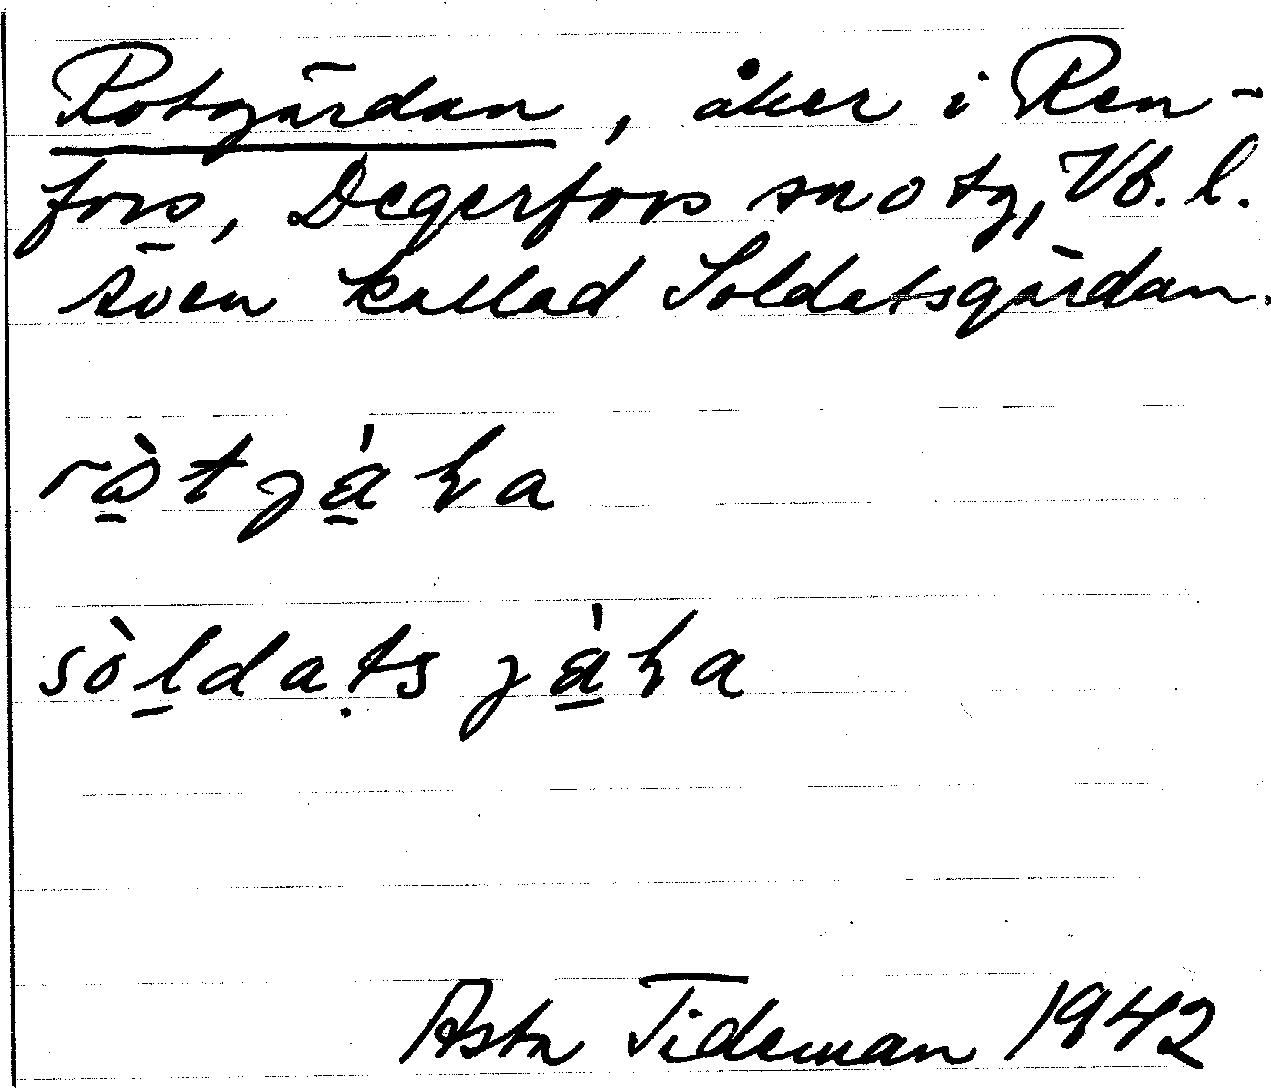 Rotgärdan, åker i Ren-
fors, Degerfors sn o tg, Vb. l.
även kallad Soldatsgärdan.
Asta Tideman 1942